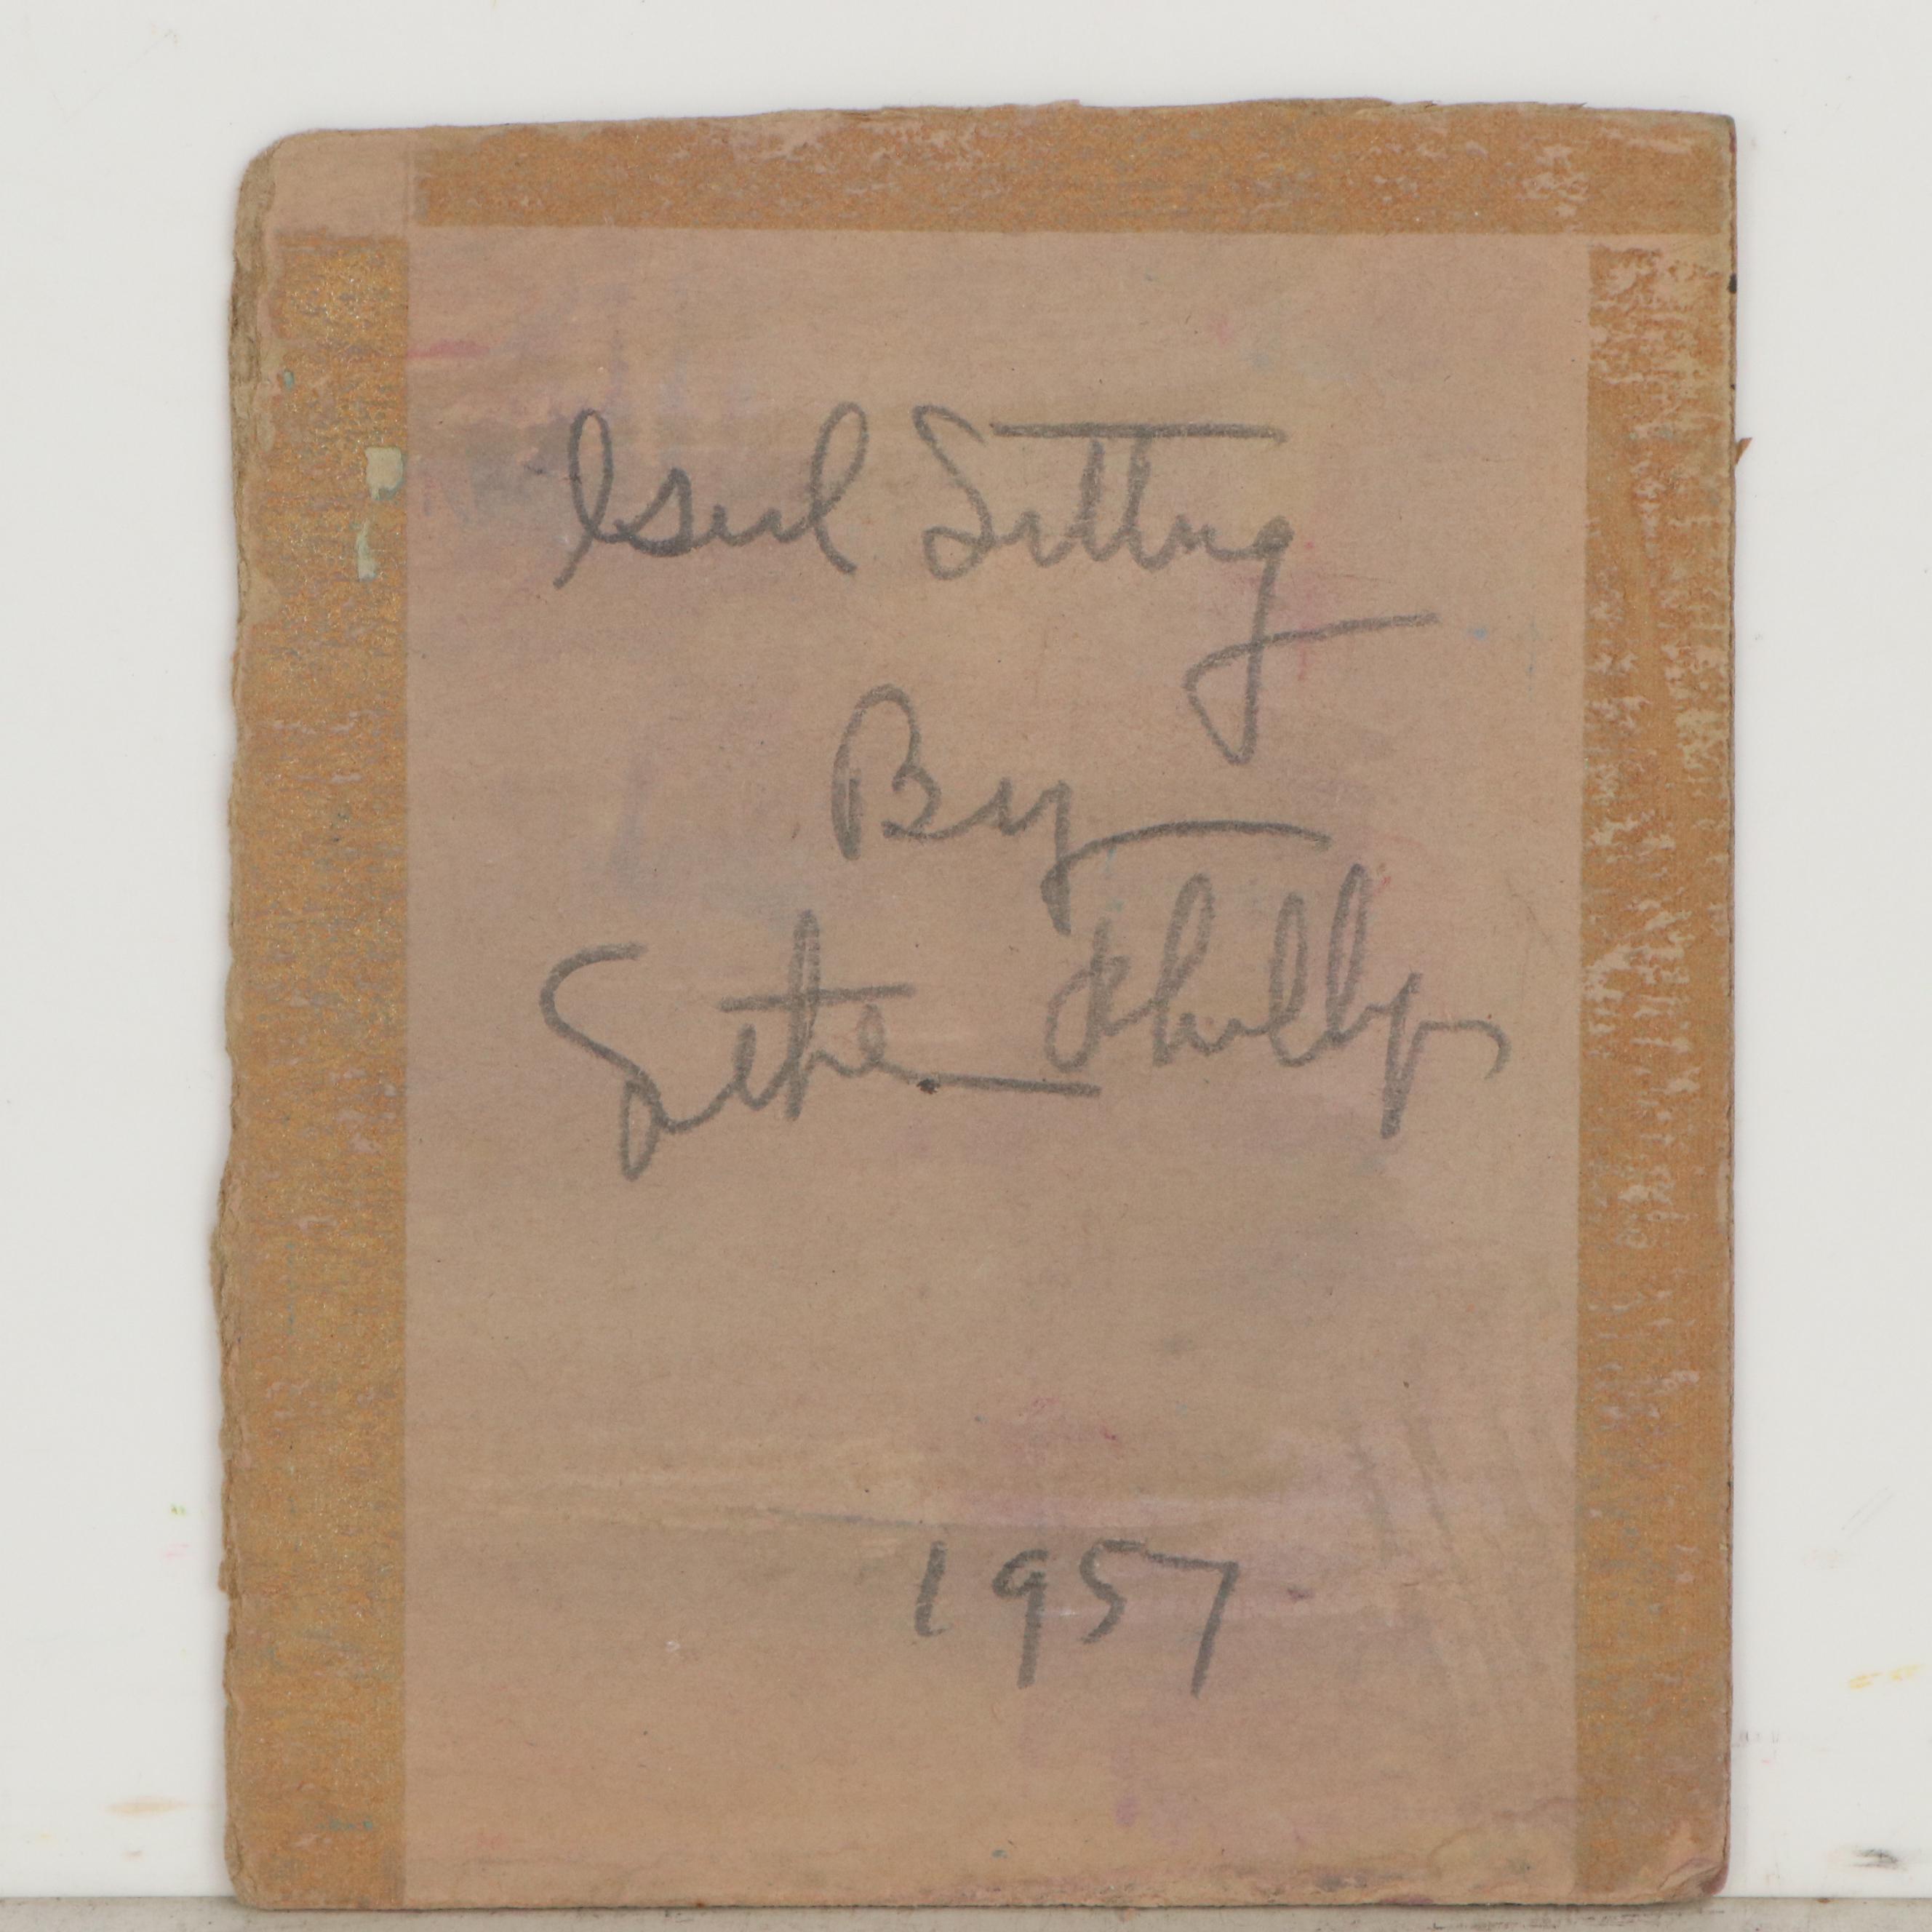 Girl Sitting
By
Esther Phillips
1957